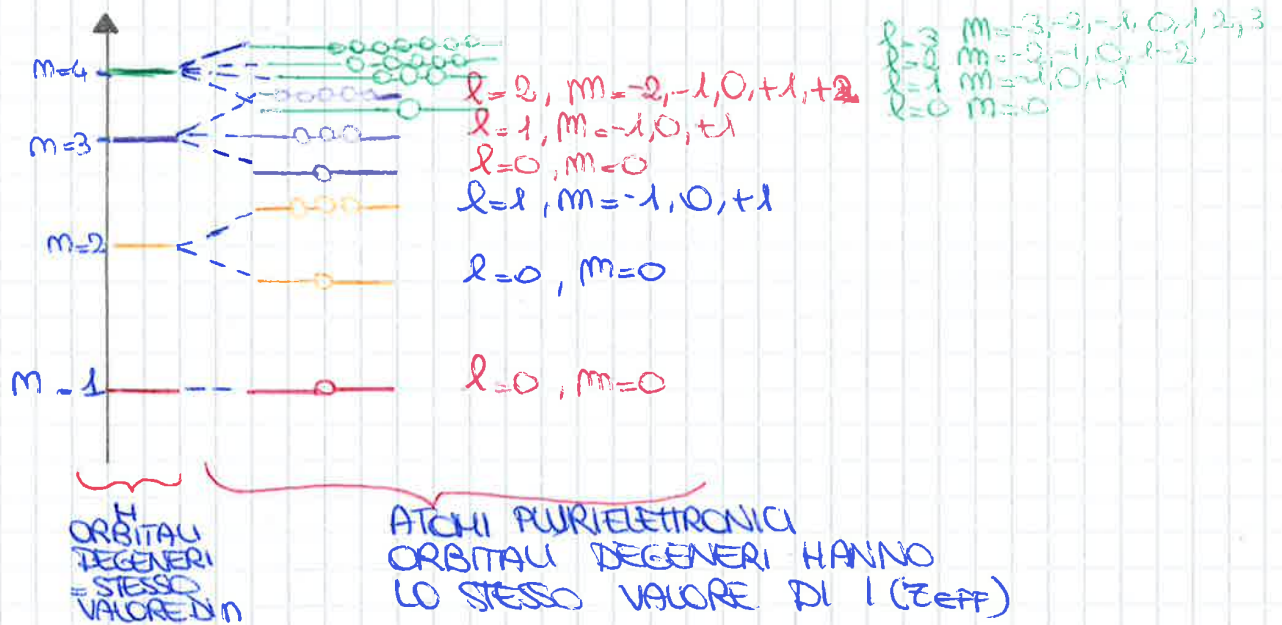 l=3 m=-3,-2,-1,0,1,2,3
l=2 m=-2,-1,0,1-2
l=1 m=-1,0,+1
l=0 m=0
m=4
l=2, m=-2,-1,0,+1,+2
m=3
l=1, m=-1,0,+1
l=0, m=0
l=1, m=-1,0,+1
m=2
l=0, m=0
m=1
l=0, m=0
H
ORBITALI
DEGENERI
= STESSO
VALORE DI n
ATOMI PLURIELETTRONICI
ORBITALI DEGENERI HANNO
LO STESSO VALORE DI l (ZEFF)